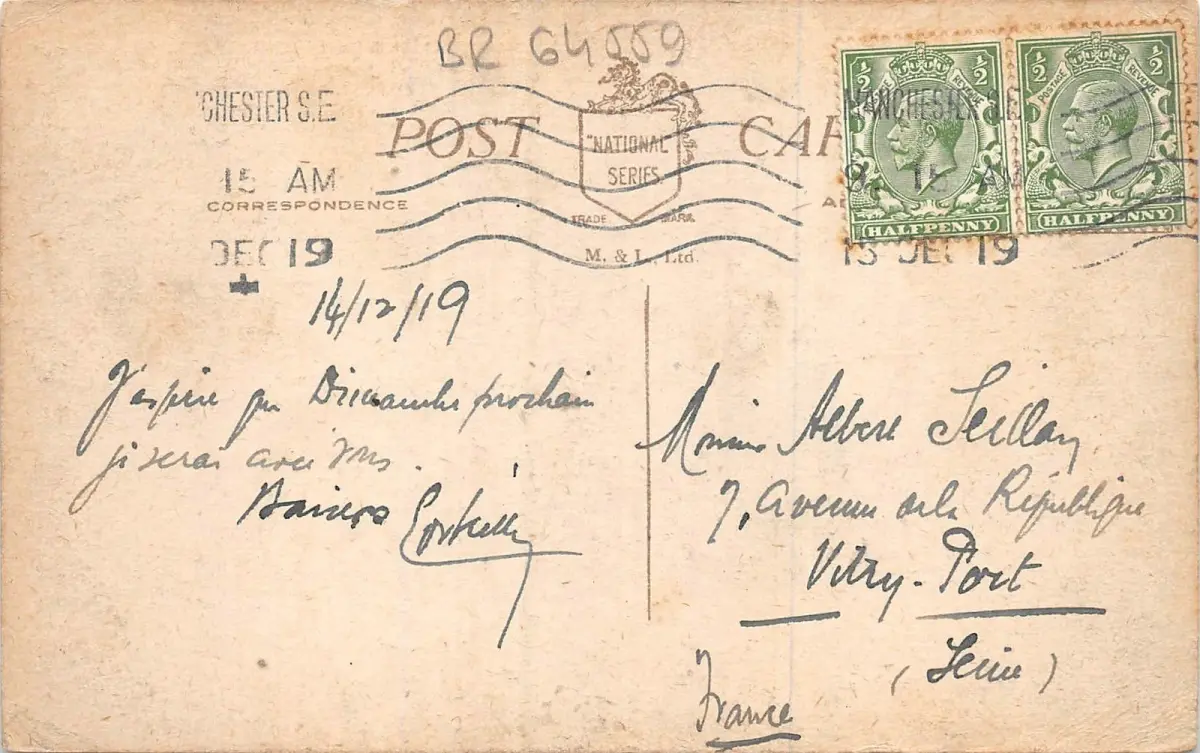 BR 64559
'CHESTER S.E.
15 AM
DEC 19
POST CAR
"NATIONAL
SERIES
TRADE MARK
M. & L., Ltd.
CORRESPONDENCE
MANCHESTER S.E.
15 AM
DEC 19
½ ½
POSTAGE REVENUE
HALFPENNY
½ ½
POSTAGE REVENUE
HALFPENNY
14/12/19
J'espère que Dimanche prochain
je serai avec vous.
Baisers
Monsieur Albert Seillan
7, Avenue de la République
Vitry-Port
(Seine)
France